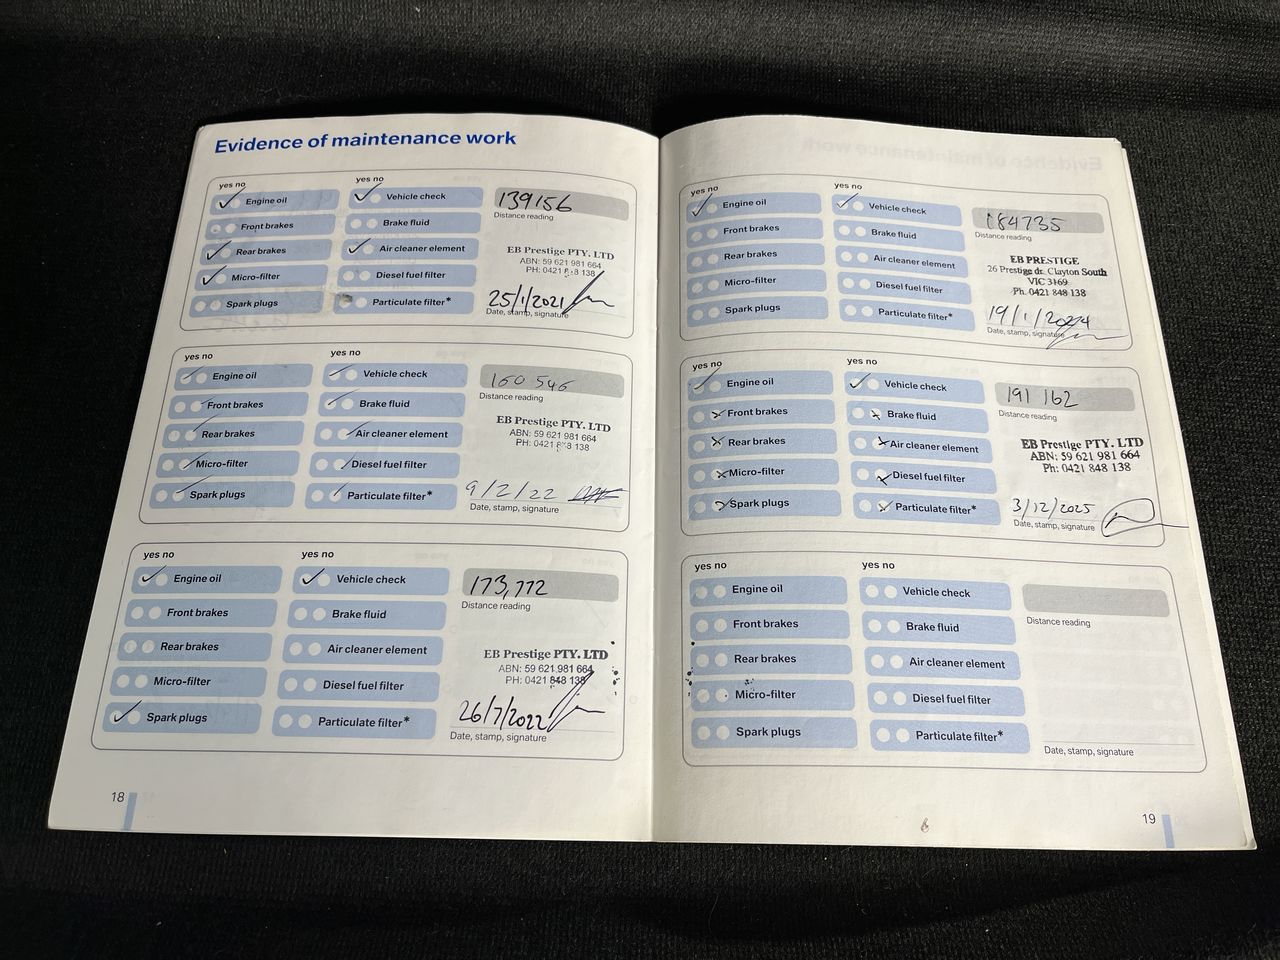 Evidence of maintenance work
yes no
yes no
Engine oil
Vehicle check
139156
Distance reading
Front brakes
Brake fluid
Rear brakes
Air cleaner element
Micro-filter
Diesel fuel filter
Spark plugs
Particulate filter*
EB Prestige PTY. LTD
ABN: 59 621 981 664
PH: 0421 848 138
25/1/2021
Date, stamp, signature
yes no
yes no
Engine oil
Vehicle check
160 546
Distance reading
Front brakes
Brake fluid
Rear brakes
Air cleaner element
Micro-filter
Diesel fuel filter
Spark plugs
Particulate filter*
EB Prestige PTY. LTD
ABN: 59 621 981 664
PH: 0421 848 138
9/2/22
Date, stamp, signature
yes no
yes no
Engine oil
Vehicle check
173,772
Distance reading
Front brakes
Brake fluid
Rear brakes
Air cleaner element
Micro-filter
Diesel fuel filter
Spark plugs
Particulate filter*
EB Prestige PTY. LTD
ABN: 59 621 981 664
PH: 0421 848 138
26/7/2022
Date, stamp, signature
18
yes no
yes no
Engine oil
Vehicle check
184735
Distance reading
Front brakes
Brake fluid
Rear brakes
Air cleaner element
Micro-filter
Diesel fuel filter
Spark plugs
Particulate filter*
EB PRESTIGE
26 Prestige dr. Clayton South
VIC 3169
Ph. 0421 848 138
19/1/2024
Date, stamp, signature
yes no
yes no
Engine oil
Vehicle check
191 162
Distance reading
Front brakes
Brake fluid
Rear brakes
Air cleaner element
Micro-filter
Diesel fuel filter
Spark plugs
Particulate filter*
EB Prestige PTY. LTD
ABN: 59 621 981 664
Ph: 0421 848 138
3/12/2025
Date, stamp, signature
yes no
yes no
Engine oil
Vehicle check
Distance reading
Front brakes
Brake fluid
Rear brakes
Air cleaner element
Micro-filter
Diesel fuel filter
Spark plugs
Particulate filter*
Date, stamp, signature
19